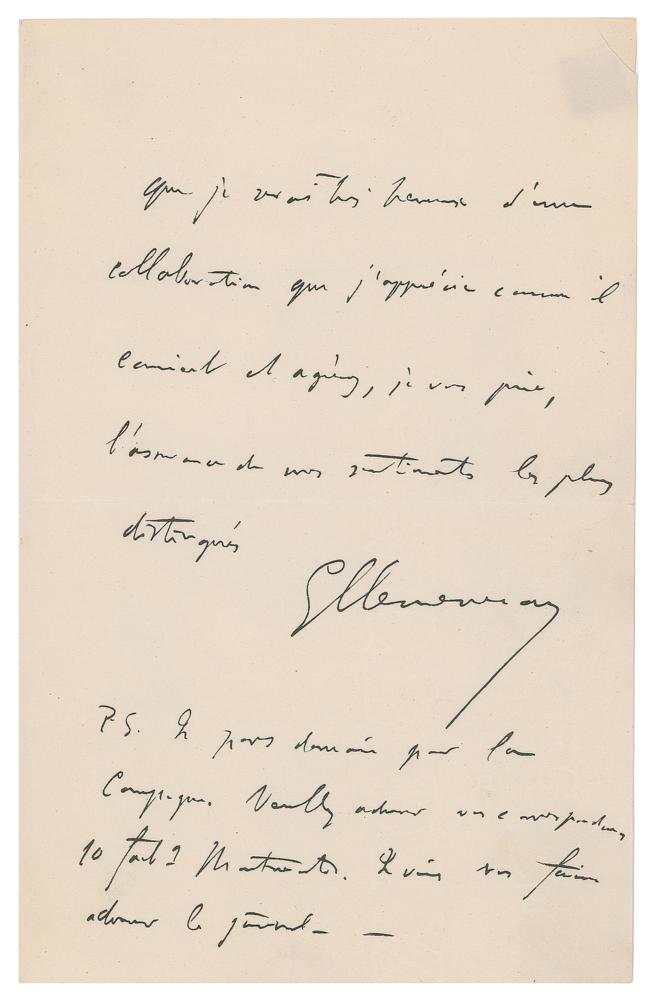 que je serais très heureux d'une
collaboration que j'apprécie comme il
convient et agréez, je vous prie,
l'assurance de mes sentiments les plus
distingués
GClemenceau
P.S. Je pars demain pour la
Campagne. Veuillez adresser vos correspondances
10 faub g Montmartre. Je vais vous faire
adresser le journal —